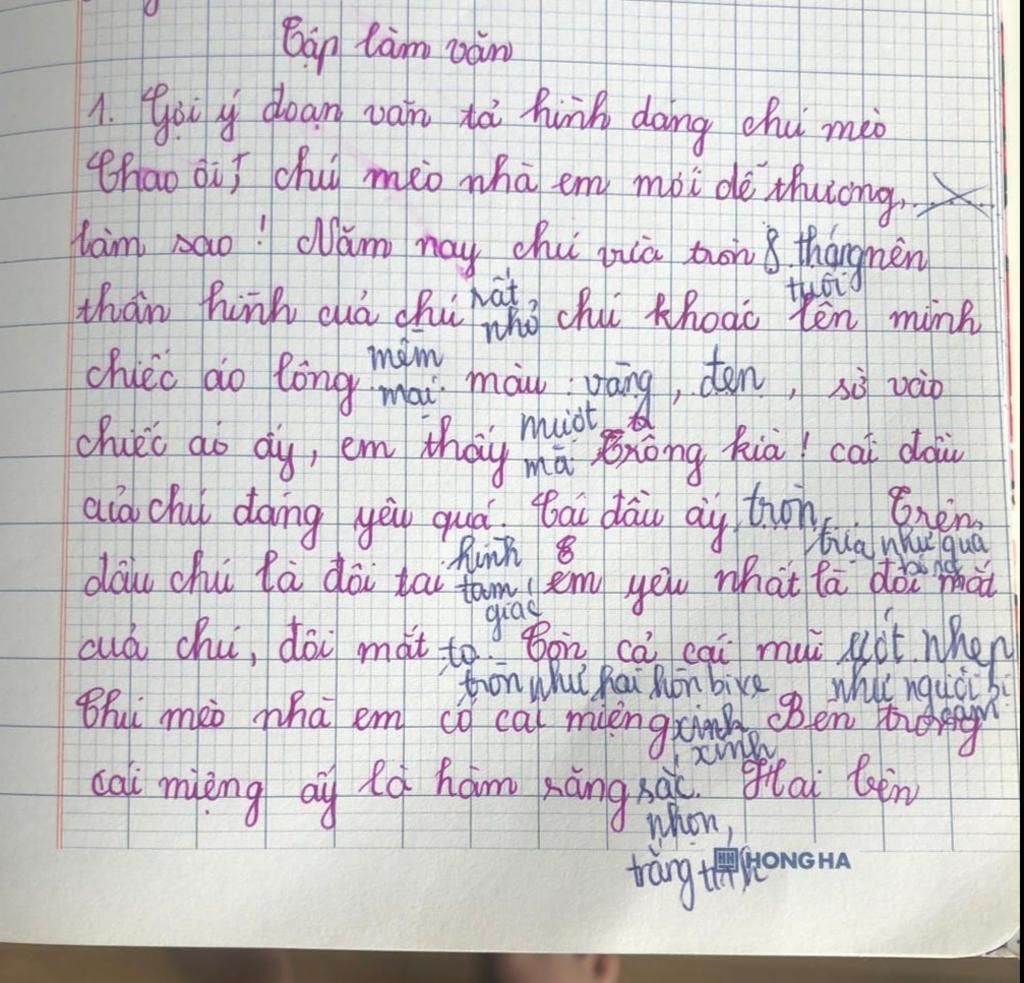 Tập làm văn
1. Gợi ý đoạn văn tả hình dáng chú mèo
Chao ôi, chú mèo nhà em mới dễ thương
làm sao! Năm nay chú vừa tròn 8 tháng nên
tuổi
thân hình của chú rất chú khoác lên mình
nhỏ
chiếc áo lông mềm màu vàng, đen, sờ vào
mại
chiếc áo ấy, em thấy mượt Trông kìa! cái đầu
mà
của chú đáng yêu quá. Cái đầu ấy tròn. Trên
trịa như quả
bóng
đầu chú là đôi tai hình em yêu nhất là đôi mắt
tam
giác
của chú, đôi mắt to. Còn cả cái mũi ướt. nhẹp
tròn như hai hòn bi ve như người bị
cảm
Chú mèo nhà em có cái miệng xinh Bên trong
xinh
cái miệng ấy là hàm răng sắc. Hai bên
nhọn,
trắng tinh
HONG HA